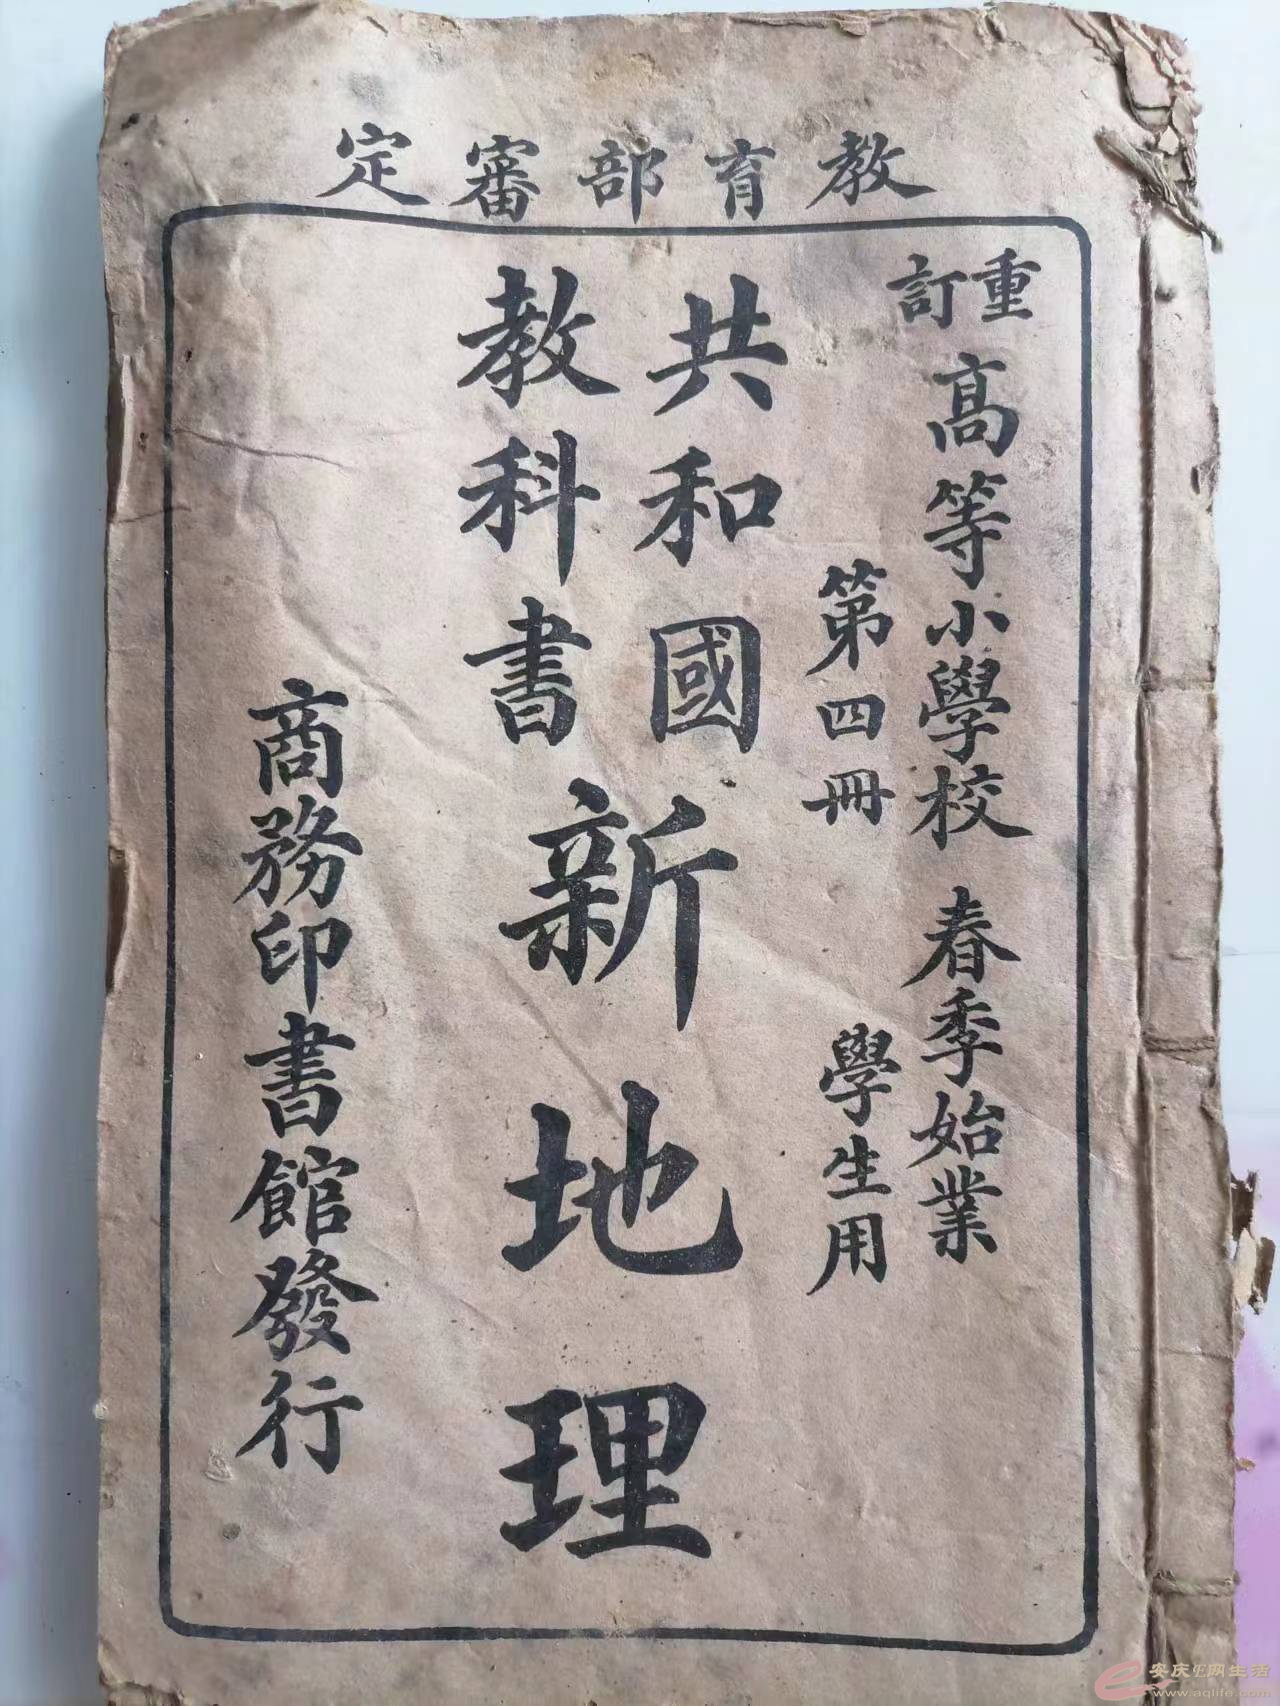 教育部審定
重訂
高等小學校 春季始業
第四冊 學生用
共和國
教科書
新地理
商務印書館發行
安庆E网生活
www.aqlife.com